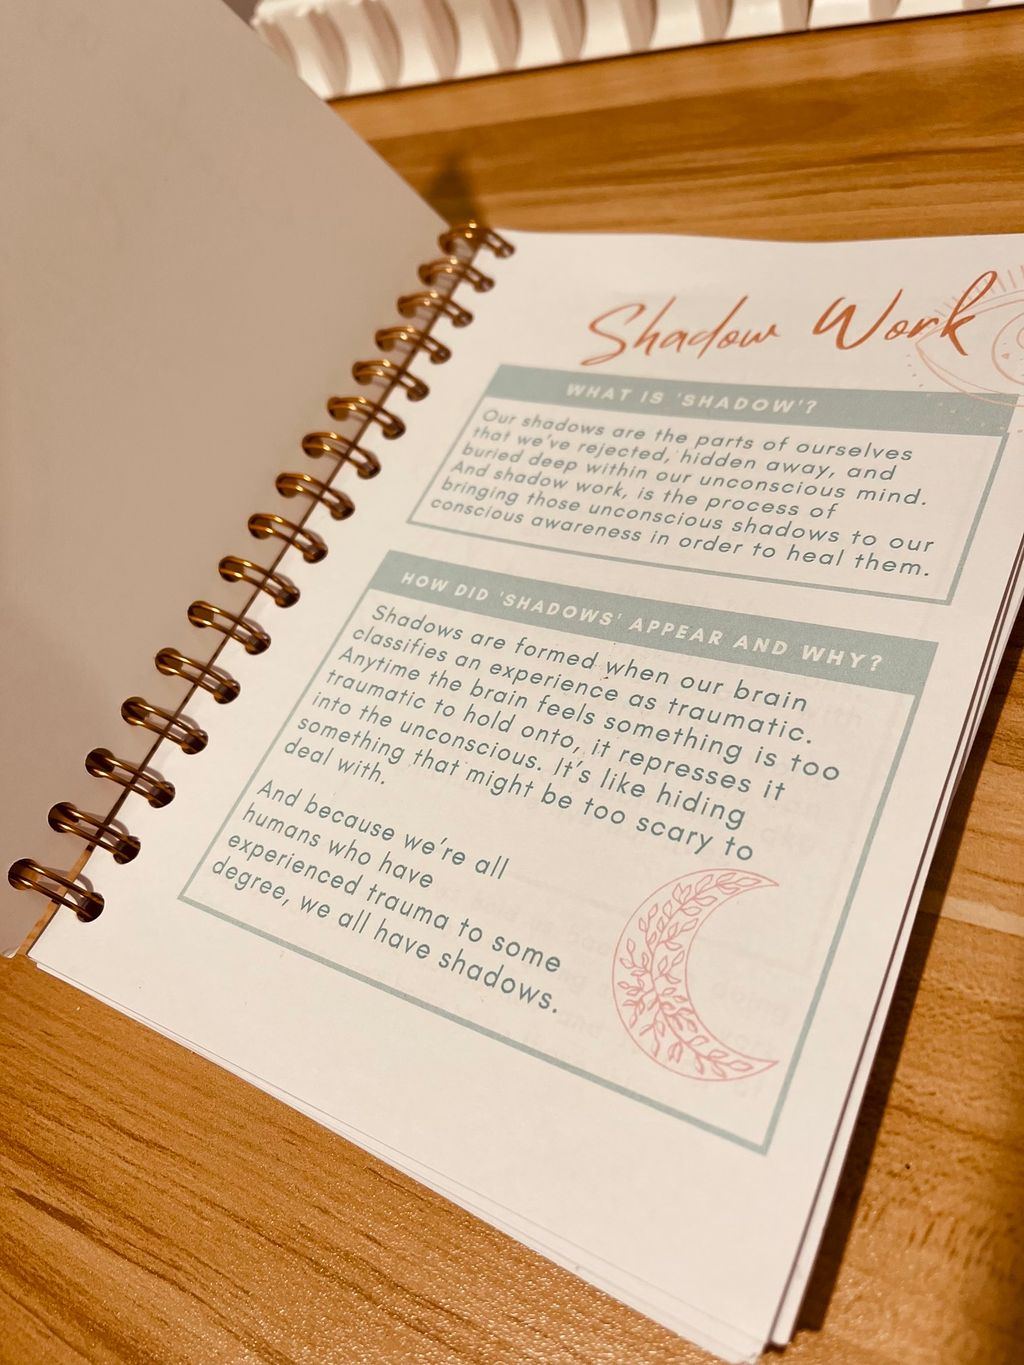 Shadow Work
WHAT IS 'SHADOW'?
Our shadows are the parts of ourselves
that we've rejected, hidden away, and
buried deep within our unconscious mind.
And shadow work, is the process of
bringing those unconscious shadows to our
conscious awareness in order to heal them.
HOW DID 'SHADOWS' APPEAR AND WHY?
Shadows are formed when our brain
classifies an experience as traumatic.
Anytime the brain feels something is too
traumatic to hold onto, it represses it
into the unconscious. It's like hiding
something that might be too scary to
deal with.
And because we're all
humans who have
experienced trauma to some
degree, we all have shadows.